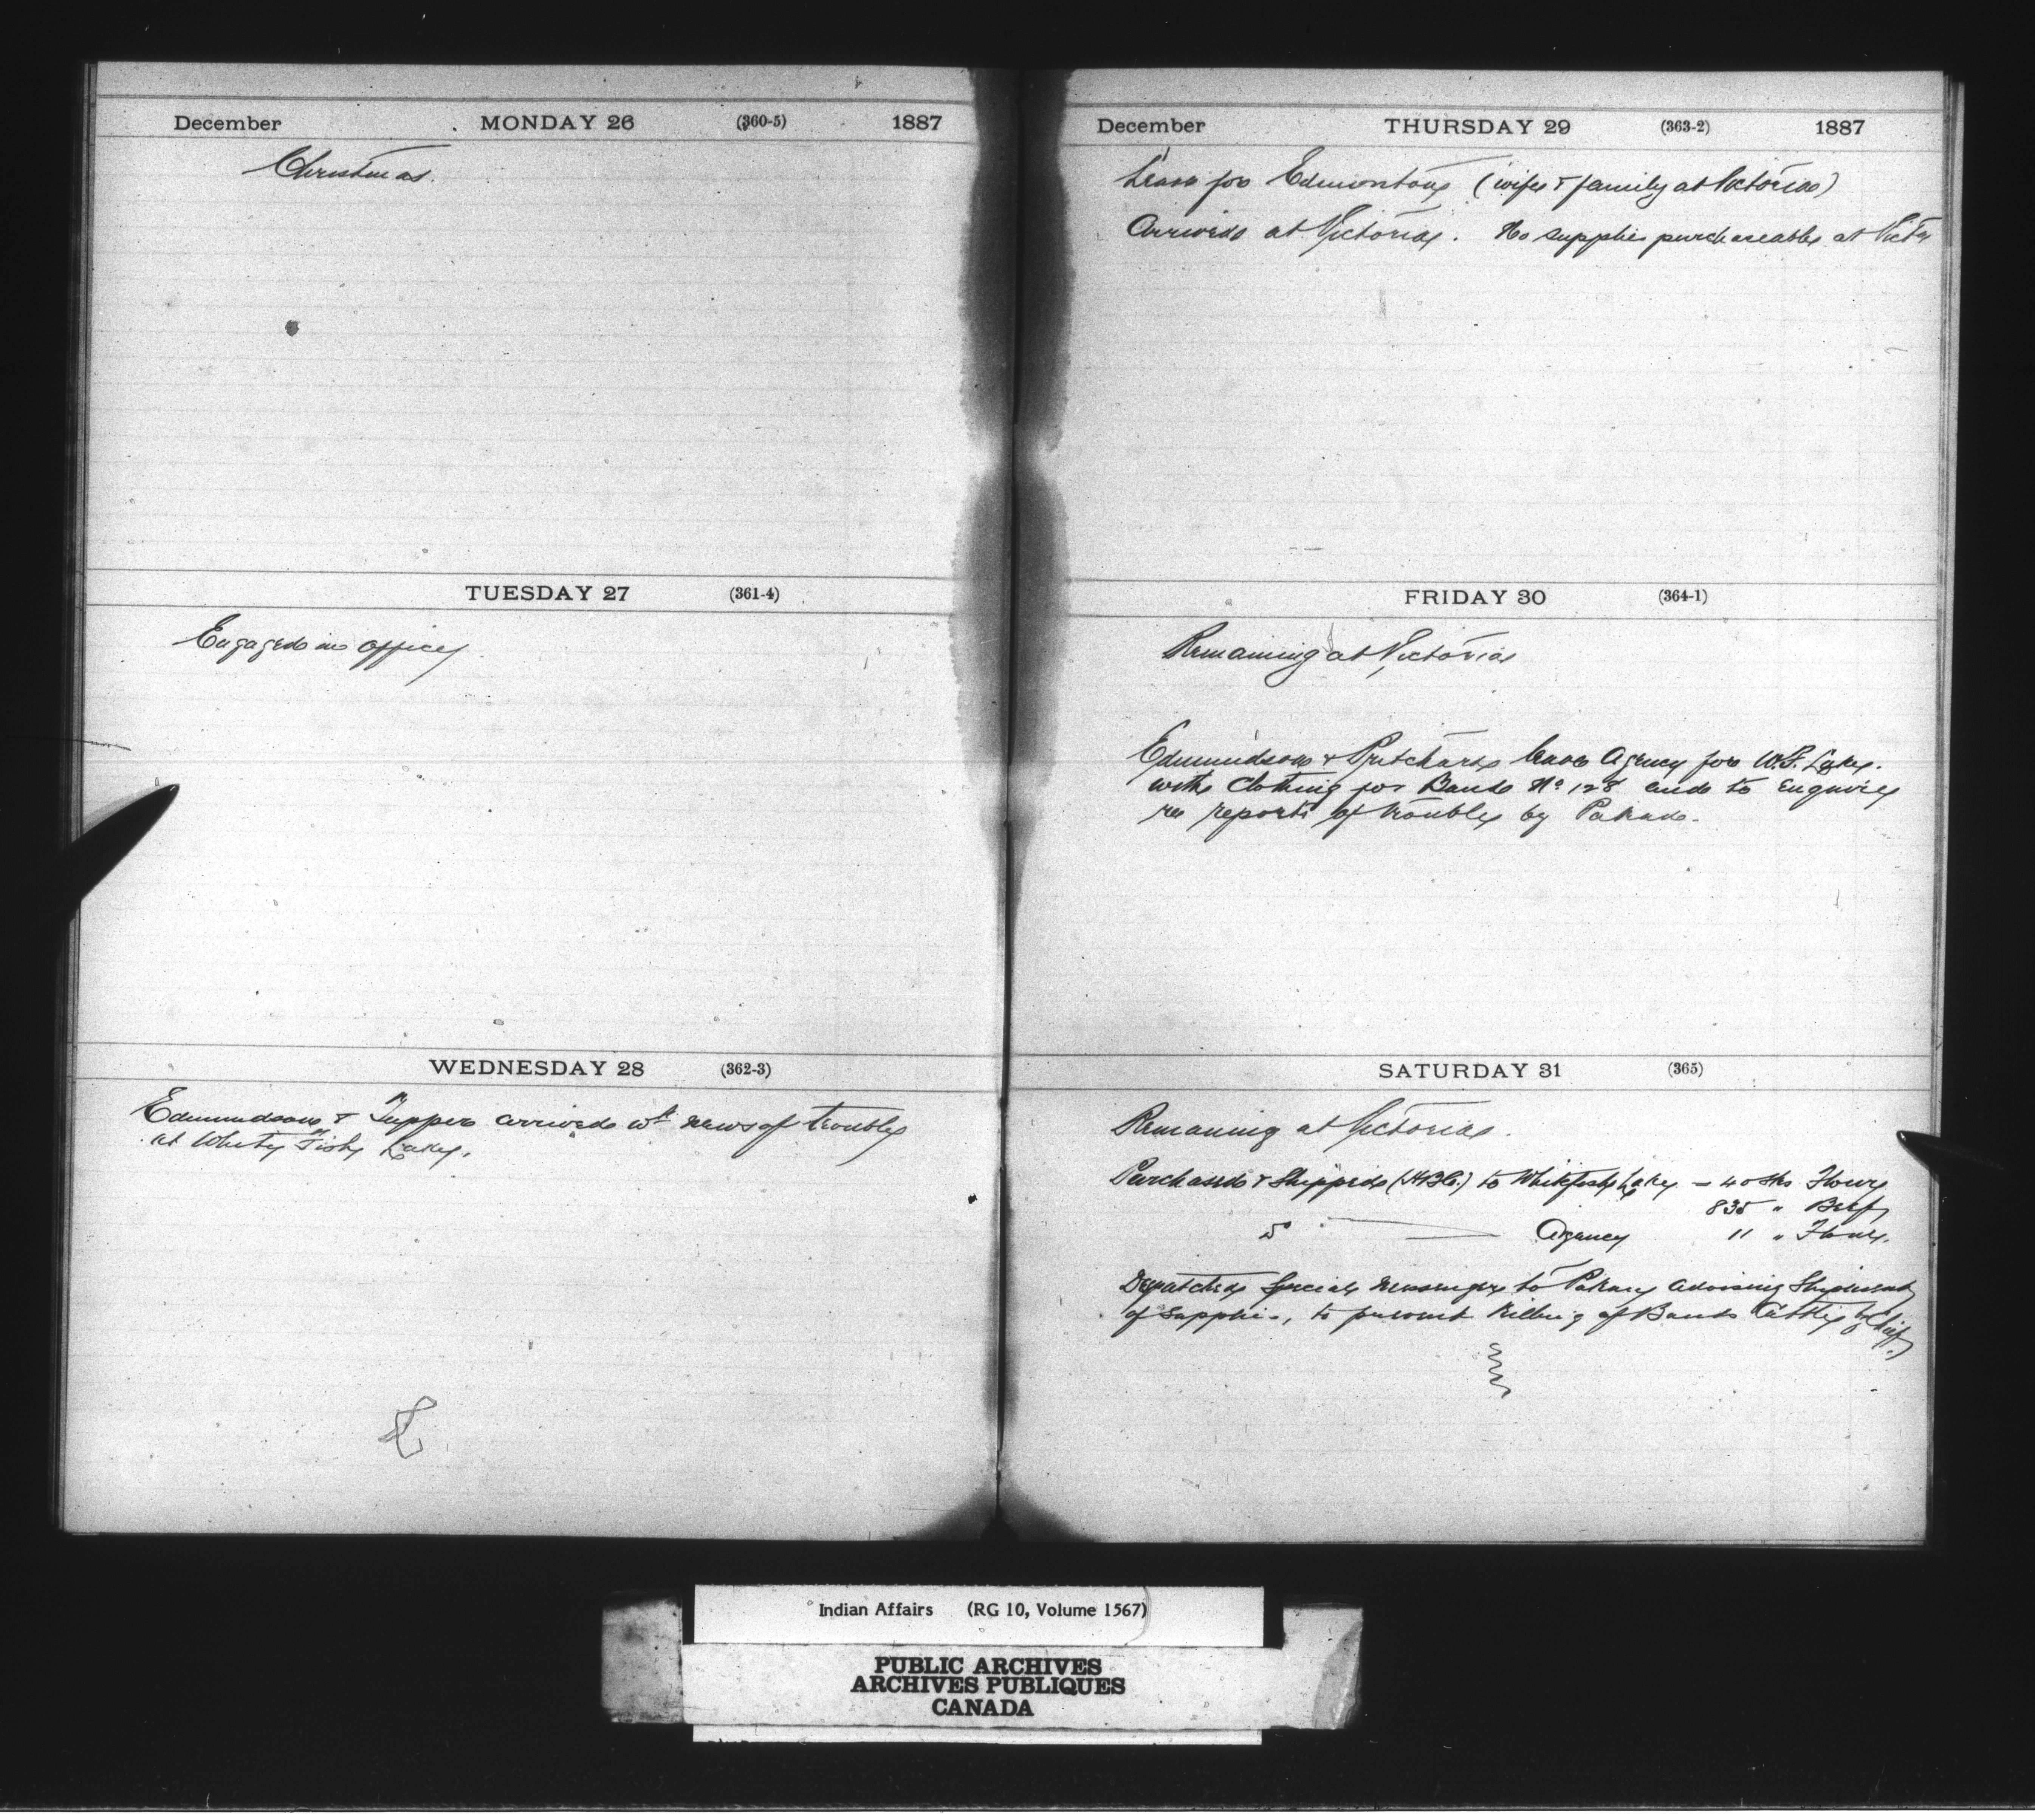 December MONDAY 26 (360-5) 1887
Christmas.
TUESDAY 27 (361-4)
Engaged in office
WEDNESDAY 28 (362-3)
Edmundson & Tupper arrived wt news of trouble
at White Fish Lake.
December THURSDAY 29 (363-2) 1887
Leave for Edmonton (wife & family at Victoria)
Arrived at Victoria. No supplies purchaseable at Victa
FRIDAY 30 (364-1)
Remaining at Victoria
Edmundson & Pritchard leave Agency for W.F. Lake.
with Clothing for Band No 128 and to Enquire
re reports of trouble by Pakan.
SATURDAY 31 (365)
Remaining at Victoria.
Purchased & Shipped (HBCo.) to Whitefish Lake – 40 sks Flour
835 " Beef
Do Agency 11 " Flour.
Despatched Special messenger to Pakan advising Shipment
of supplies, to prevent killing of Bands Cattle by Chief.
Indian Affairs (RG 10, Volume 1567)
PUBLIC ARCHIVES
ARCHIVES PUBLIQUES
CANADA